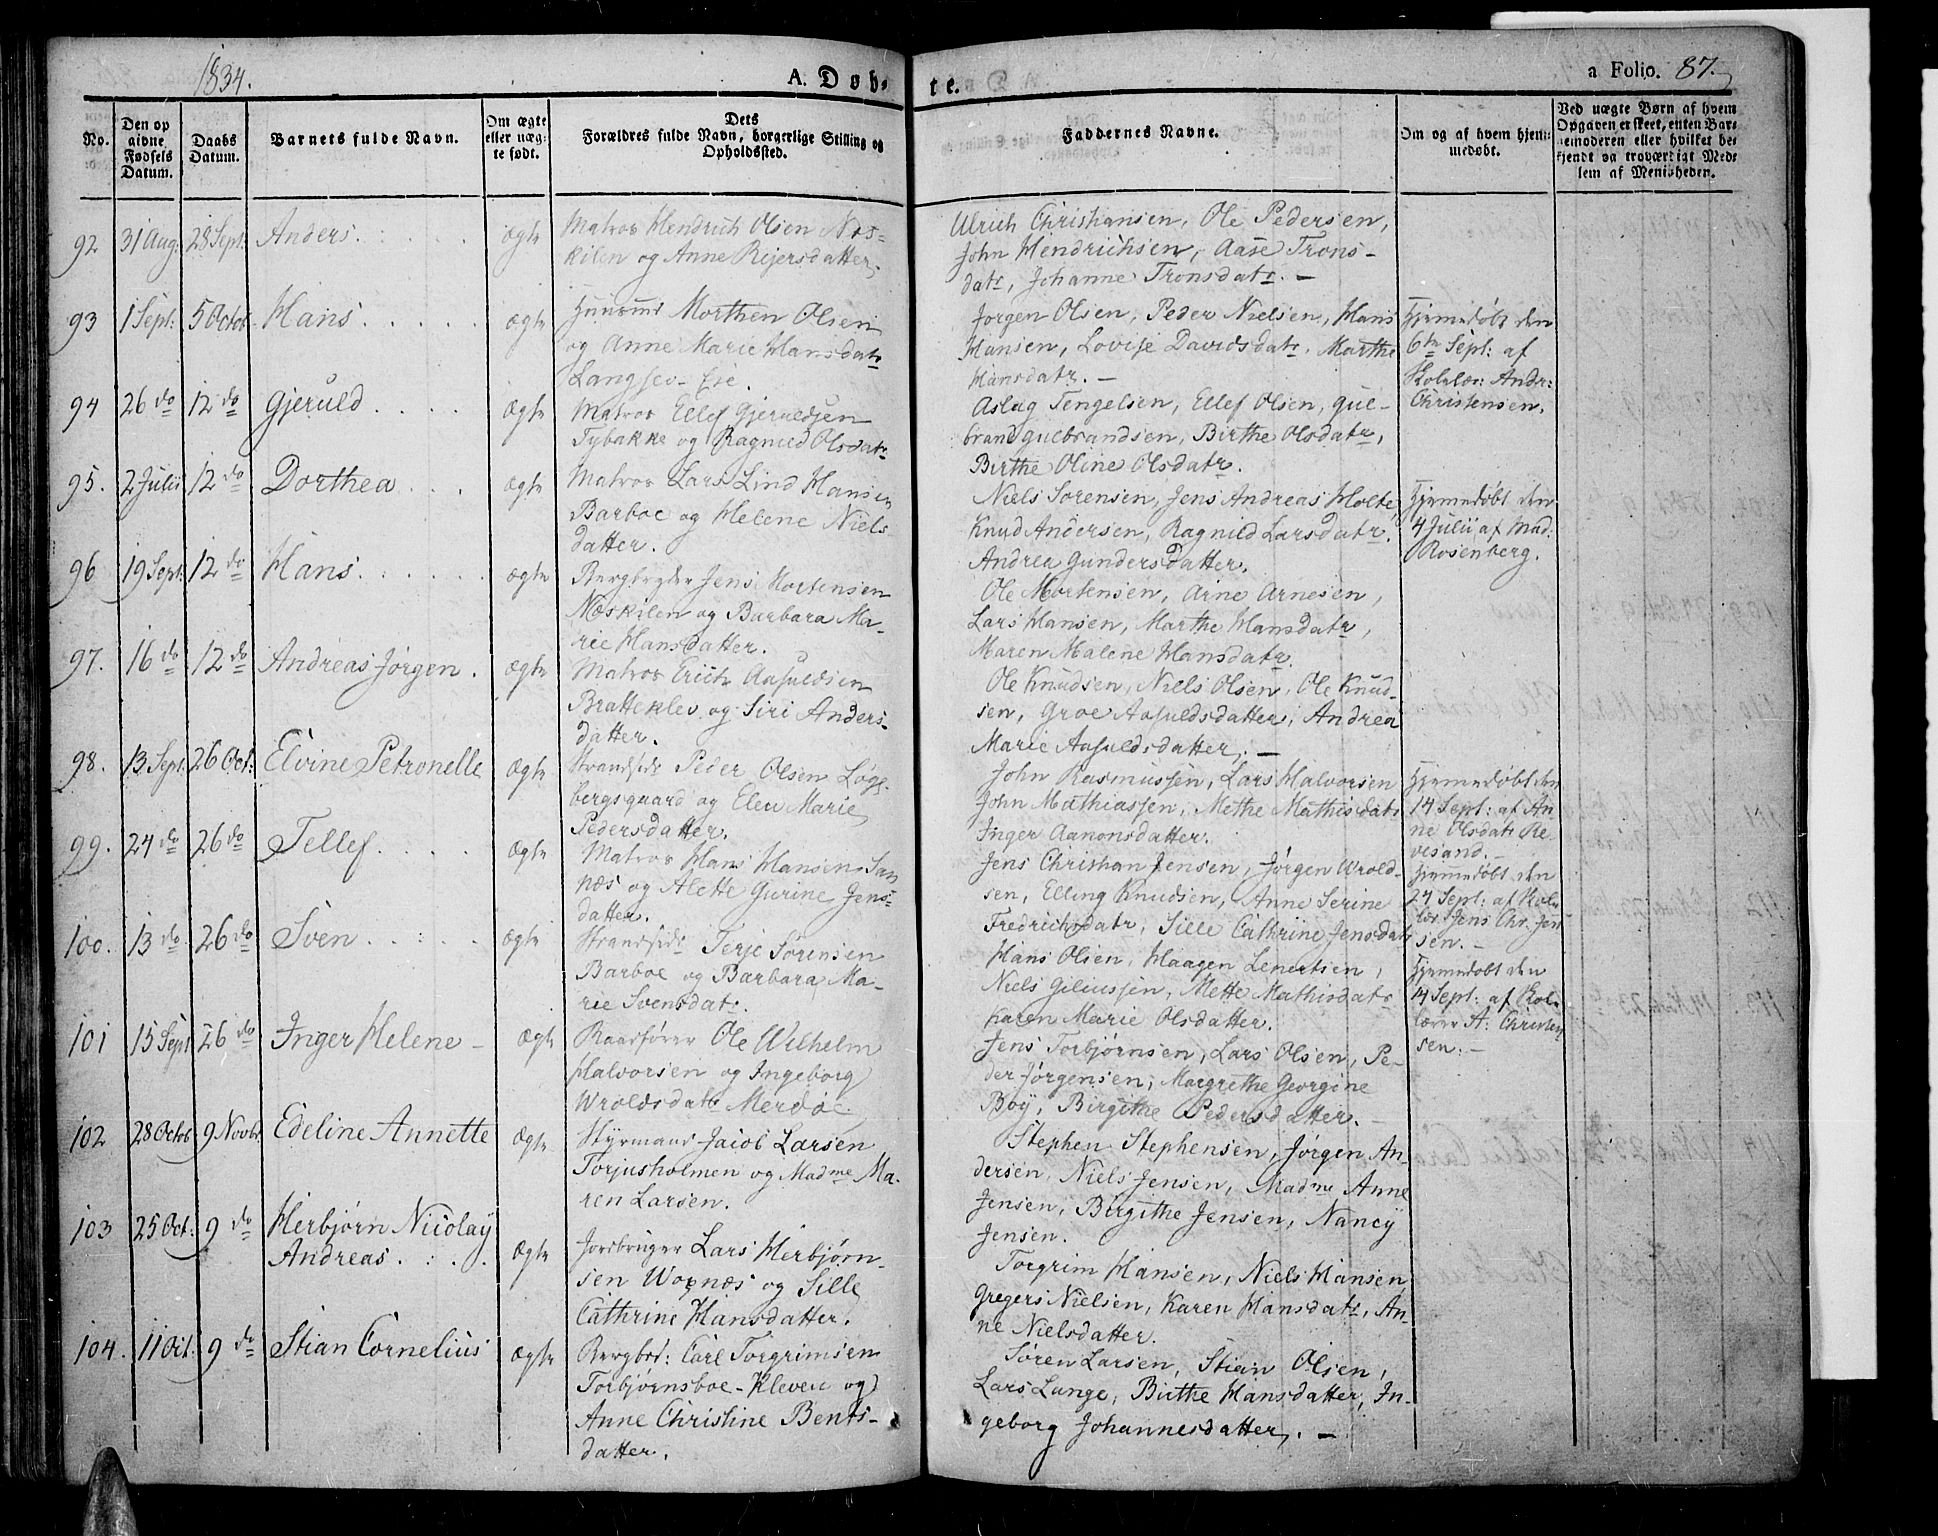 1834.
A. Døb-
te.
a Folio. 87.
No.
Den op
givne
Fødsels
Datum.
Daabs
Datum.
Barnets fulde Navn.
Om ægte
eller uæg-
te født.
Dets
Forældres fulde Navn, borgerlige Stilling og
Opholdssted.
Faddernes Navne.
Om og af hvem hjem-
medøbt.
Ved uægte Børn af hvem
Opgaven er skeet, enten Bar-
nemoderen eller hvilket be-
kjendt og troværdigt Med-
lem af Menigheden.
92 31 Aug: 28 Sept: Anders. ægte
Matros Hendrich Olsen Næs-
kilen og Anne Reiersdatter.
Ulrich Christiansen, Ole Pedersen,
John Hendrichsen, Aase Trons-
datr, Johanne Tronsdatr. —
93 1 Sept: 5 Octob. Hans. ægte
Huusmd Morthen Olsen
og Anne Marie Hansdatr
Langsev-Eie.
Jørgen Olsen, Peder Nielsen, Hans
Hansen, Lovise Davidsdatr, Marthe
Hansdatr. —
Hjemmedøbt den
6te Sept: af
Skolelær: Andr:
Christensen.
94 26 do 12 do Gjeruld. ægte
Matros Ellef Gjeruldsen
Tybakke og Ragnild Olsdatr
Aslag Tengelsen, Ellef Olsen, Gul-
brand Gulbrandsen, Birthe Olsdatr,
Birthe Oline Olsdatr.
95. 2 Julii 12 do Dorthea. ægte
Matros Lars Lind Hansen
Barboe og Helene Niels
datter.
Niels Sørensen, Jens Andreas Holte,
Knud Andersen, Ragnild Larsdatr.
Andrea Gundersdatter.
Hjemmedøbt den
4 Julii af Mad:
Rosenberg.
96 19 Sept: 12 do Hans. ægte
Bergbryder Jens Mortensen
Næskilen og Barbara Ma-
rie Hansdatter.
Ole Mortensen, Arne Arnesen,
Lars Hansen, Marthe Hansdatr,
Maren Malene Hansdatr.
97. 16 do 12 do Andreas Jørgen. ægte
Matros Erich Aasuldsen
Bratteklev og Siri Anders-
datter.
Ole Knudsen, Niels Olsen, Ole Knud-
sen, Groe Aasuldsdatter, Andrea
Marie Aasuldsdatter. —
98. 13 Sept: 26 Oct: Elvine Petronelle ægte
Strandsidr Peder Olsen Løge-
bergsgaard og Elen Marie
Pedersdatter.
John Rasmussen, Lars Halvorsen
John Mathiassen, Methe Mathisdatr
Inger Aanonsdatter.
Hjemmedøbt den
14 Sept: af An-
ne Olsdatr Re-
vesand. —
99. 24 do 26 do Tellef. ægte
Matros Hans Hansen San
næs og Alette Gurine Jens-
datter.
Jens Christian Jensen, Jørgen Wrold-
sen, Elling Knudsen, Anne Serine
Fredrichsdatr, Sille Cathrine Jensdatr
Hjemmedøbt den
24 Sept: af Skole
lær: Jens Chr. Jen
sen. —
100. 13 do 26 do Sven. ægte
Strandsidr Terje Sørensen
Barboe og Barbara Ma-
rie Svensdatr.
Hans Olsen, Haagen Lenertsen,
Niels Giliussen, Mette Mathisdatr
Karen Marie Olsdatter.
Hjemmedøbt den
14 Sept: af Skole
lærer A: Christen
sen. —
101 15 Sept 26 do Inger Helene — ægte
Raarfører Ole Wilhelm
Halvorsen og Ingeborg
Wroldsdatr Merdøe.
Jens Torbjørnsen, Lars Olsen, Pe-
der Jørgensen, Margrethe Georgine
Boy, Birgithe Pedersdatter. —
102 28 Octob 9 Novbr. Edeline Annette ægte
Styrmand Jacob Larsen
Torjusholmen og Madme Ma-
ren Larsen.
Stephen Stephensen, Jørgen An-
dersen, Niels Jensen, Madme Anne
Jensen, Birgithe Jensen, Nancy
Jensen.
103 25 Oct: 9 do Herbjørn Nicolay
Andreas. ægte
Jordbruger Lars Herbjørn-
sen Woxnæs og Sille
Cathrine Hansdatter.
Torgrim Hansen, Niels Hansen
Gregers Nielsen, Karen Hansdatr, An-
ne Nielsdatter.
104. 11 Oct: 9 do Stian Cornelius ægte
Bergbrd: Carl Torgrimsen
Torbjørnsboe-Kleven og
Anne Christine Bents-
datter.
Søren Larsen, Stian Olsen,
Lars Lange, Birthe Hansdatter, In-
geborg Johannesdatter. —